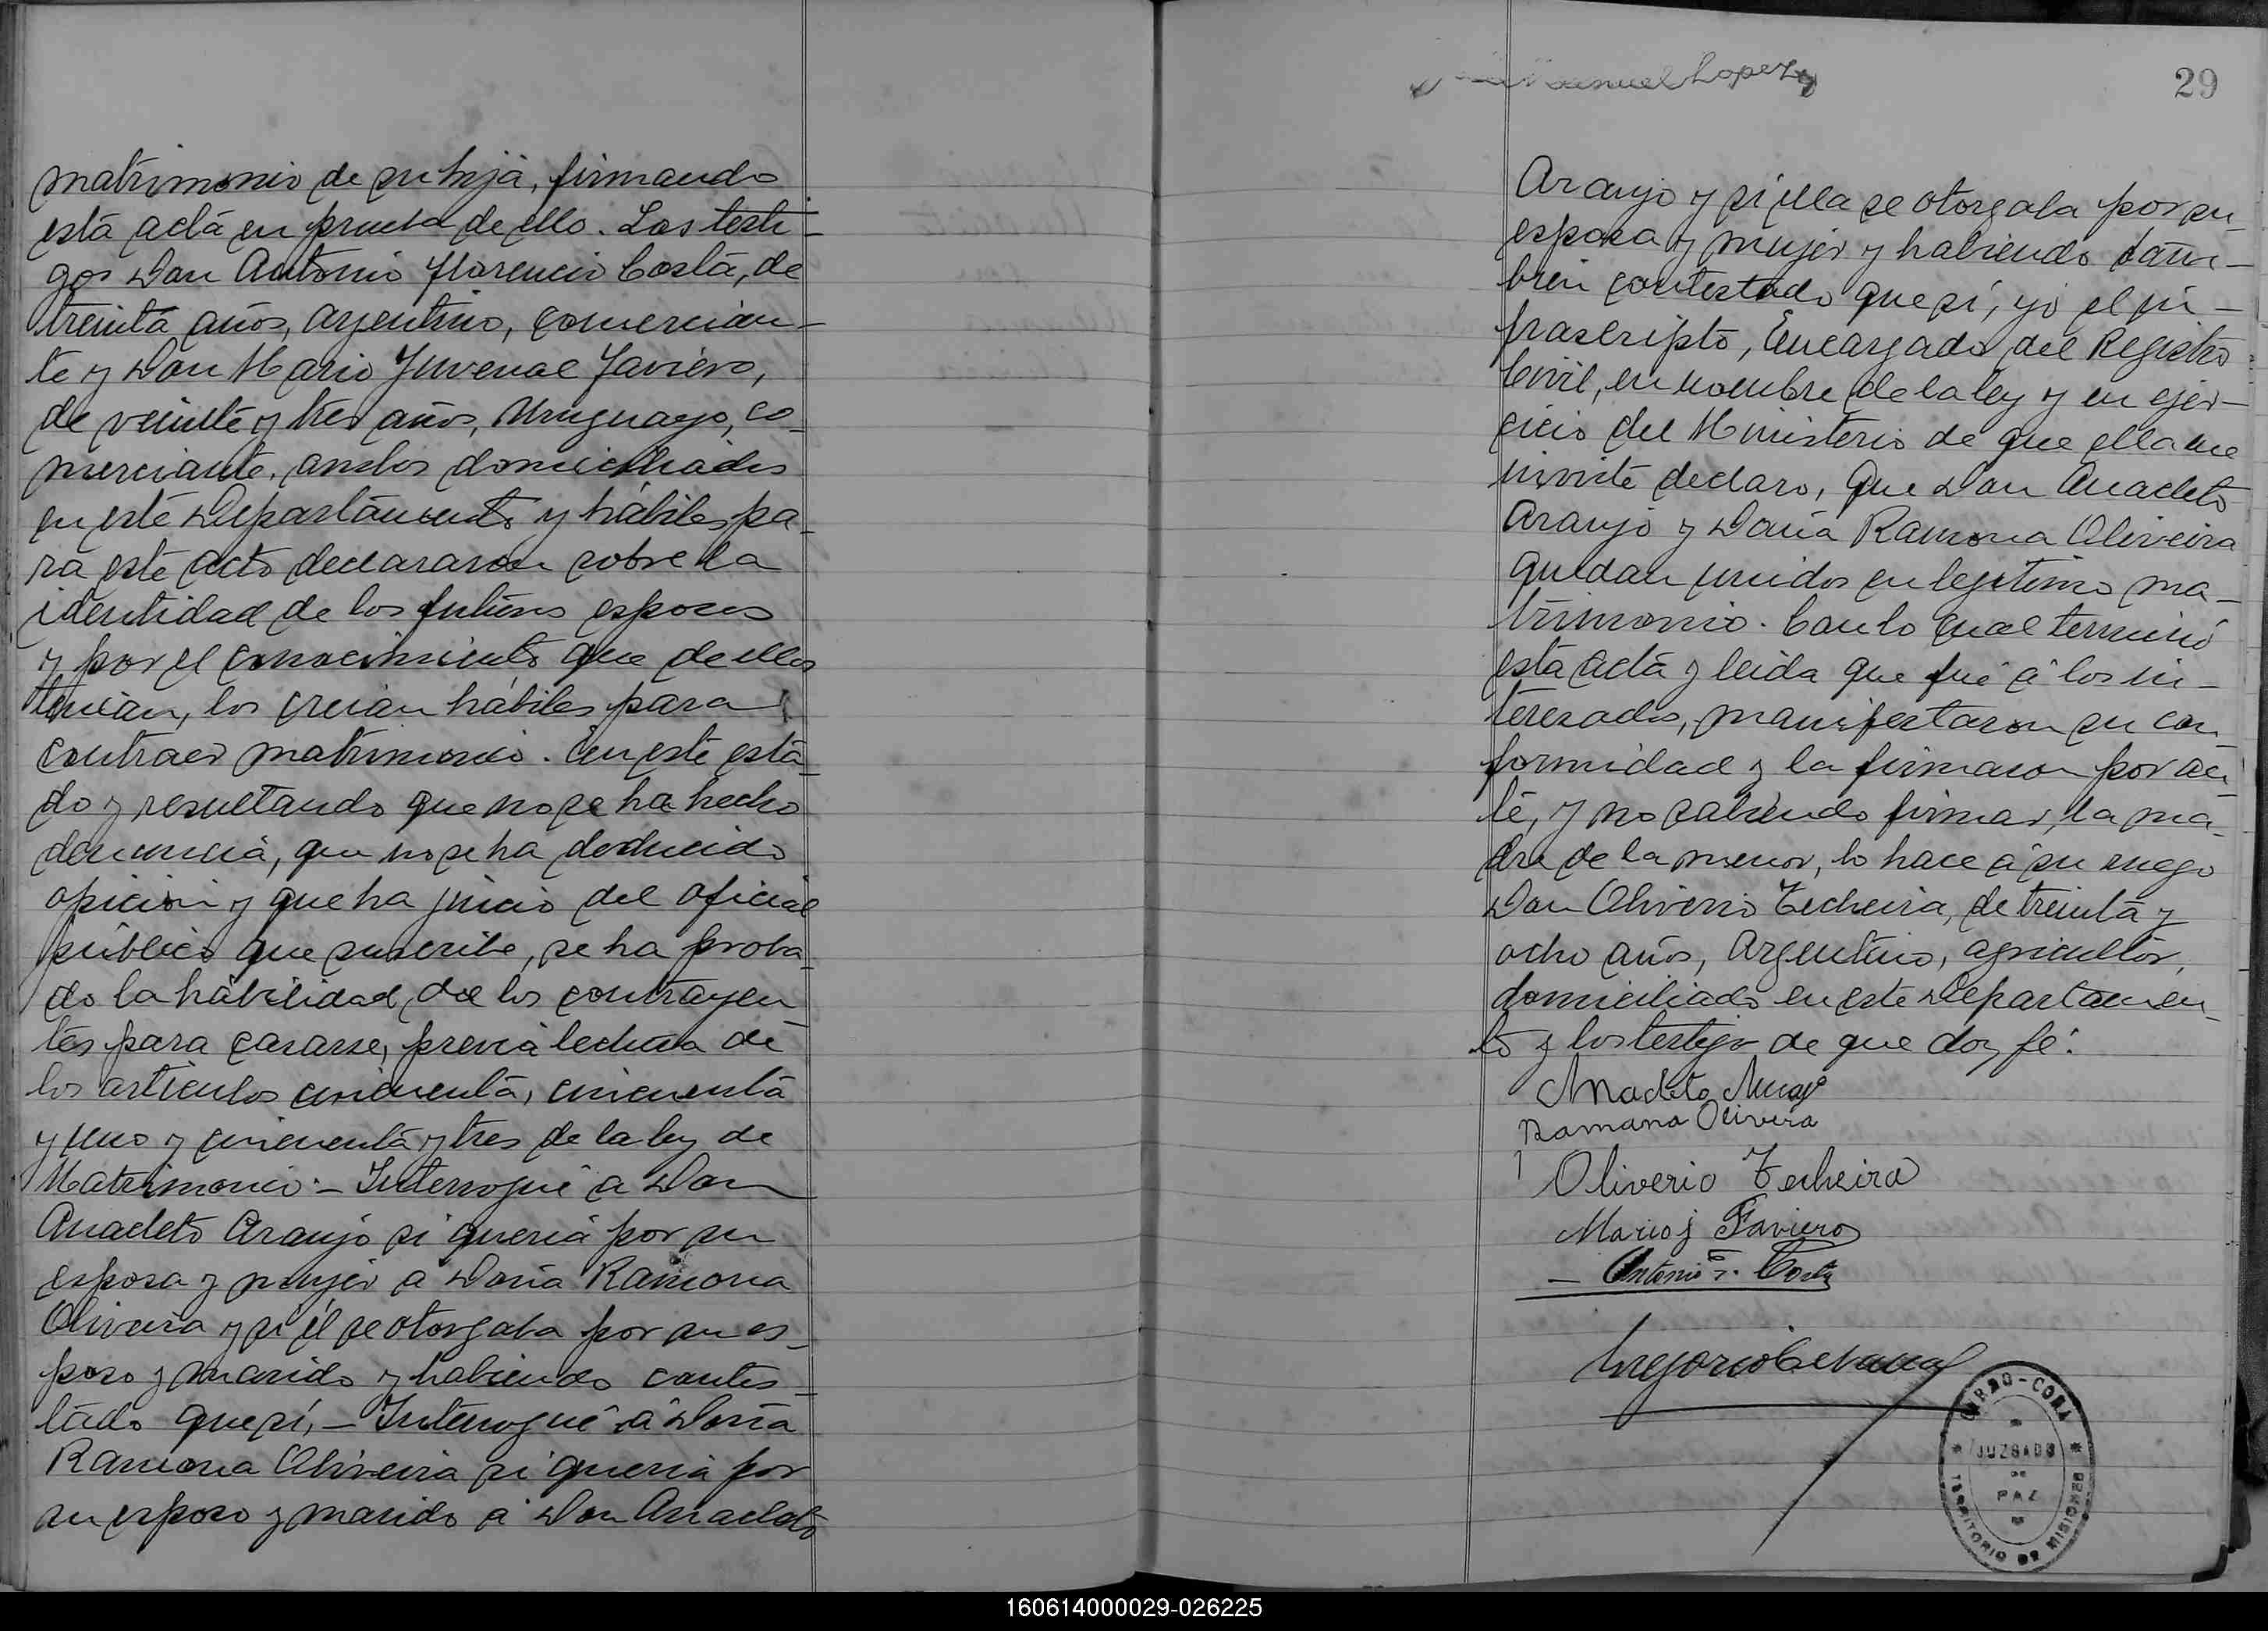 matrimonio de su hija, firmando
está actá en prueba de ello. Los testi-
gos Don Antonio Florencio Costá, de
treinta años, argentino, comercian-
te y Don Mario Juvenal Javiero,
de veinte y tres años, Uruguayo, co-
merciante, ambos domiciliados
en este Departamento y hábiles pa-
ra este acto declararon sobre la
identidad de los futuros esposos
y por el conocimiento que de ellos
tenian, los creian hábiles para
contraer matrimonio. En este està-
do y resultando que no se ha hecho
denuncia, que no se ha deducido
opicion y que ha juicio del oficial
público que suscribe, se ha proba-
do la habilidad de los contrayen
tes para casarse, previa lectura de
los articulos cincuenta, cincuenta
y uno y cincuenta y tres de la ley de
Matrimonio.- Interrogué a Don
Anacleto Araujo si queria por su
esposa y mujer a Doña Ramona
Oliveira y si él se otorgaba por su es-
poso y marido y habiendo contes-
tado que sí,- Interrogué á Doña
Ramona Oliveira si queria por
su esposo y marido a Don Anacleto
Manuel Lopez
29
Araujo y si ella se otorgaba por su
esposa y mujer y habiendo tam-
bien contestado que sí, yo el in-
frascripto, Encargado del Registro
Civil, en nombre de la ley y en ejer-
cicio del Ministerio de que ella me
inviste declaro, que Don Anacleto
Araujo y Doña Ramona Oliveira
quedan unidos en legitimo ma-
trimonio. Con lo cual terminó
está actá y leida que fué á los in-
teresados, manifestaron su con
formidad y la firmaron por an
té, y no sabiendo firmar, la ma-
dre de la menor, lo hace á su ruego
Don Oliverio Techeira, de treinta y
ocho años, Argentino, agricultor,
domiciliado en este Departamen-
to y los testigos de que doy fé.
Anacleto
Ramana Olivera
Oliverio Techeira
Mario J Faviero
Antonio F. Costa
Gregorio
CERRO-CORA
JUZGADO
DE
PAZ
TERRITORIO DE MISIONES
160614000029-026225